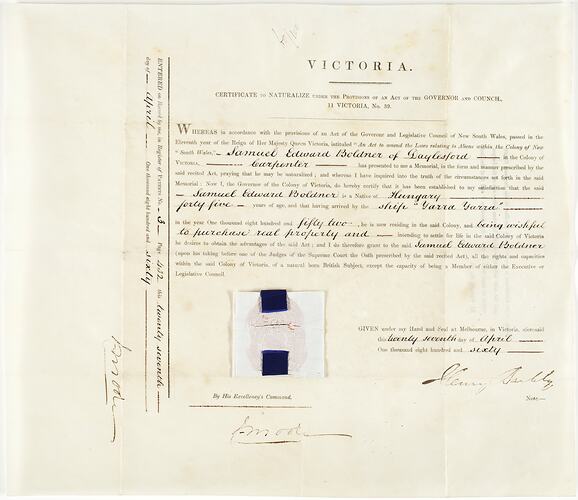 VICTORIA.
CERTIFICATE TO NATURALIZE UNDER THE PROVISIONS OF AN ACT OF THE GOVERNOR AND COUNCIL,
11 VICTORIA, No. 39.
WHEREAS in accordance with the provisions of an Act of the Governor and Legislative Council of New South Wales, passed in the
Eleventh year of the Reign of Her Majesty Queen Victoria, intituled "An Act to amend the Laws relating to Aliens within the Colony of New
"South Wales," Samuel Edward Boldner of Daylesford in the Colony of
VICTORIA, Carpenter has presented to me a Memorial, in the form and manner prescribed by the
said recited Act, praying that he may be naturalized; and whereas I have inquired into the truth of the circumstances set forth in the said
Memorial: Now I, the Governor of the Colony of Victoria, do hereby certify that it has been established to my satisfaction that the said
Samuel Edward Boldner is a Native of Hungary
forty five years of age, and that having arrived by the Ship "Yarra Yarra"
in the year One thousand eight hundred and fifty two, he is now residing in the said Colony, and being wishful
to purchase real property and intending to settle for life in the said Colony of Victoria
he desires to obtain the advantages of the said Act; and I do therefore grant to the said Samuel Edward Boldner
(upon his taking before one of the Judges of the Supreme Court the Oath prescribed by the said recited Act), all the rights and capacities
within the said Colony of Victoria, of a natural born British Subject, except the capacity of being a Member of either the Executive or
Legislative Council.
GIVEN under my Hand and Seal at Melbourne, in Victoria, aforesaid
this twenty seventh day of April
One thousand eight hundred and sixty
Henry Barkly
By His Excellency's Command,
ENTERED on Record by me, in Register of Patents No. 3 Page 452 this twenty seventh
day of April One thousand eight hundred and sixty